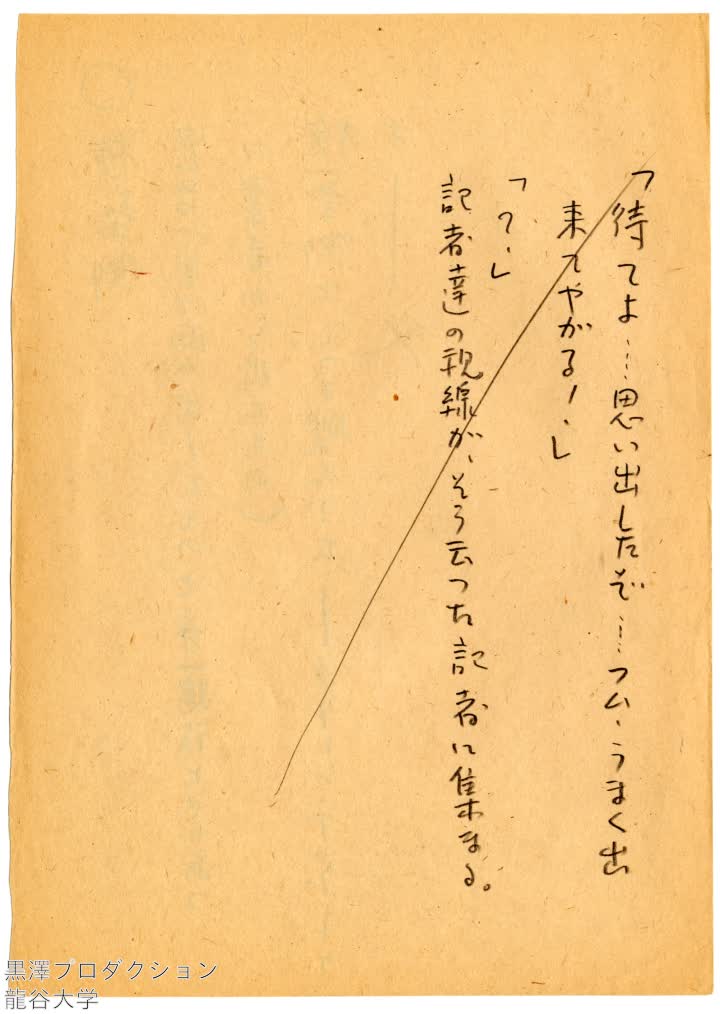 「待てよ……思い出したぞ……フム、うまく出
来てやがる!」
「?」
記者達の視線が、そう云つた記者に集まる。
黒澤プロダクション
龍谷大学